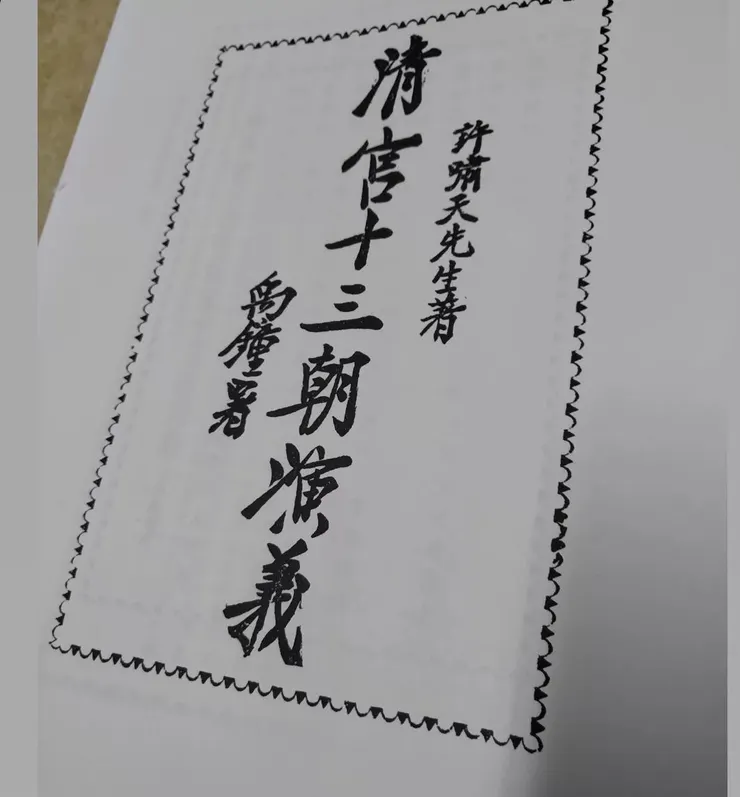 許嘯天先生著
清宮十三朝演義
禹鐘署